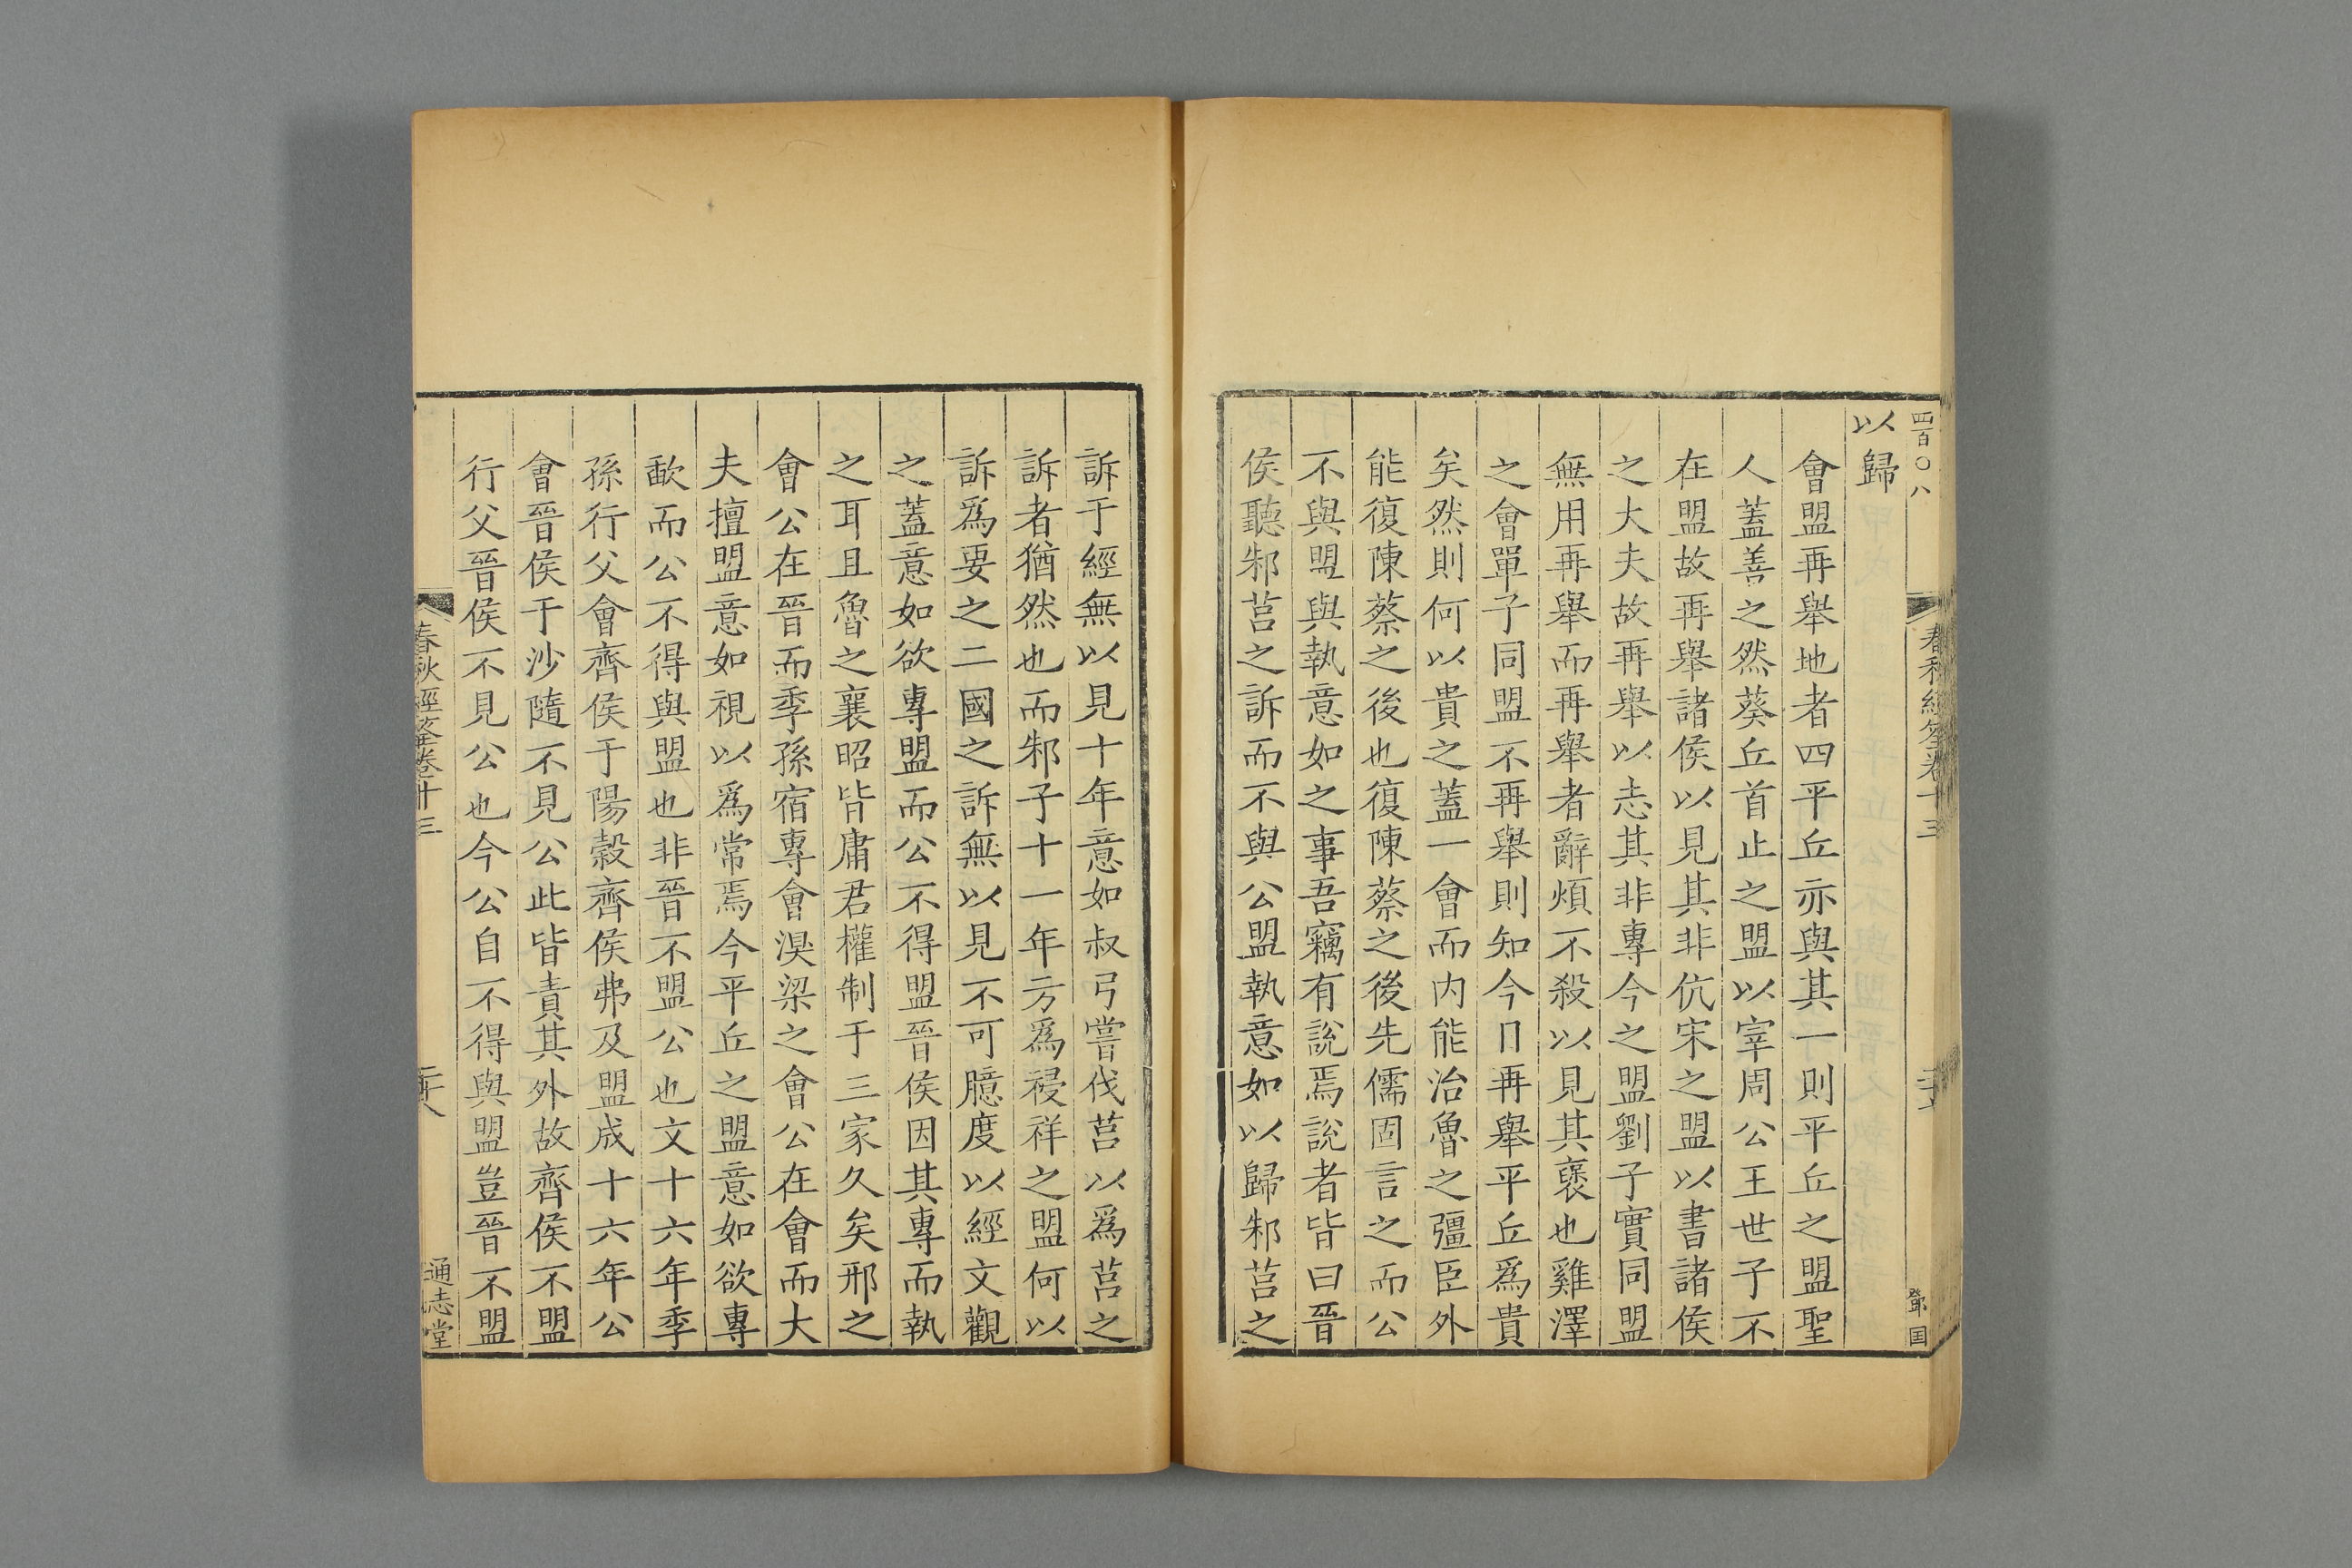 四百〇八
春秋經筌卷十三
鄧国
以歸
會盟再舉地者四平丘亦與其一則平丘之盟聖
人蓋善之然葵丘首止之盟以宰周公王世子不
在盟故再舉諸侯以見其非伉宋之盟以書諸侯
之大夫故再舉以志其非專今之盟劉子實同盟
無用再舉而再舉者辭煩不殺以見其褒也雞澤
之會單子同盟不再舉則知今日再舉平丘為貴
矣然則何以貴之蓋一會而內能治魯之彊臣外
能復陳蔡之後也復陳蔡之後先儒固言之而公
不與盟與執意如之事吾竊有說焉說者皆曰晉
侯聽邾莒之訴而不與公盟執意如以歸邾莒之
訴于經無以見十年意如叔弓嘗伐莒以為莒之
訴者猶然也而邾子十一年方為祲祥之盟何以
訴為要之二國之訴無以見不可臆度以經文觀
之蓋意如欲專盟而公不得盟晉侯因其專而執
之耳且魯之襄昭皆庸君權制于三家久矣邢之
會公在晉而季孫宿專會湨梁之會公在會而大
夫擅盟意如視以為常焉今平丘之盟意如欲專
歃而公不得與盟也非晉不盟公也文十六年季
孫行父會齊侯于陽穀齊侯弗及盟成十六年公
會晉侯于沙隨不見公此皆責其外故齊侯不盟
行父晉侯不見公也今公自不得與盟豈晉不盟
春秋經筌卷十三
二十八
通志堂